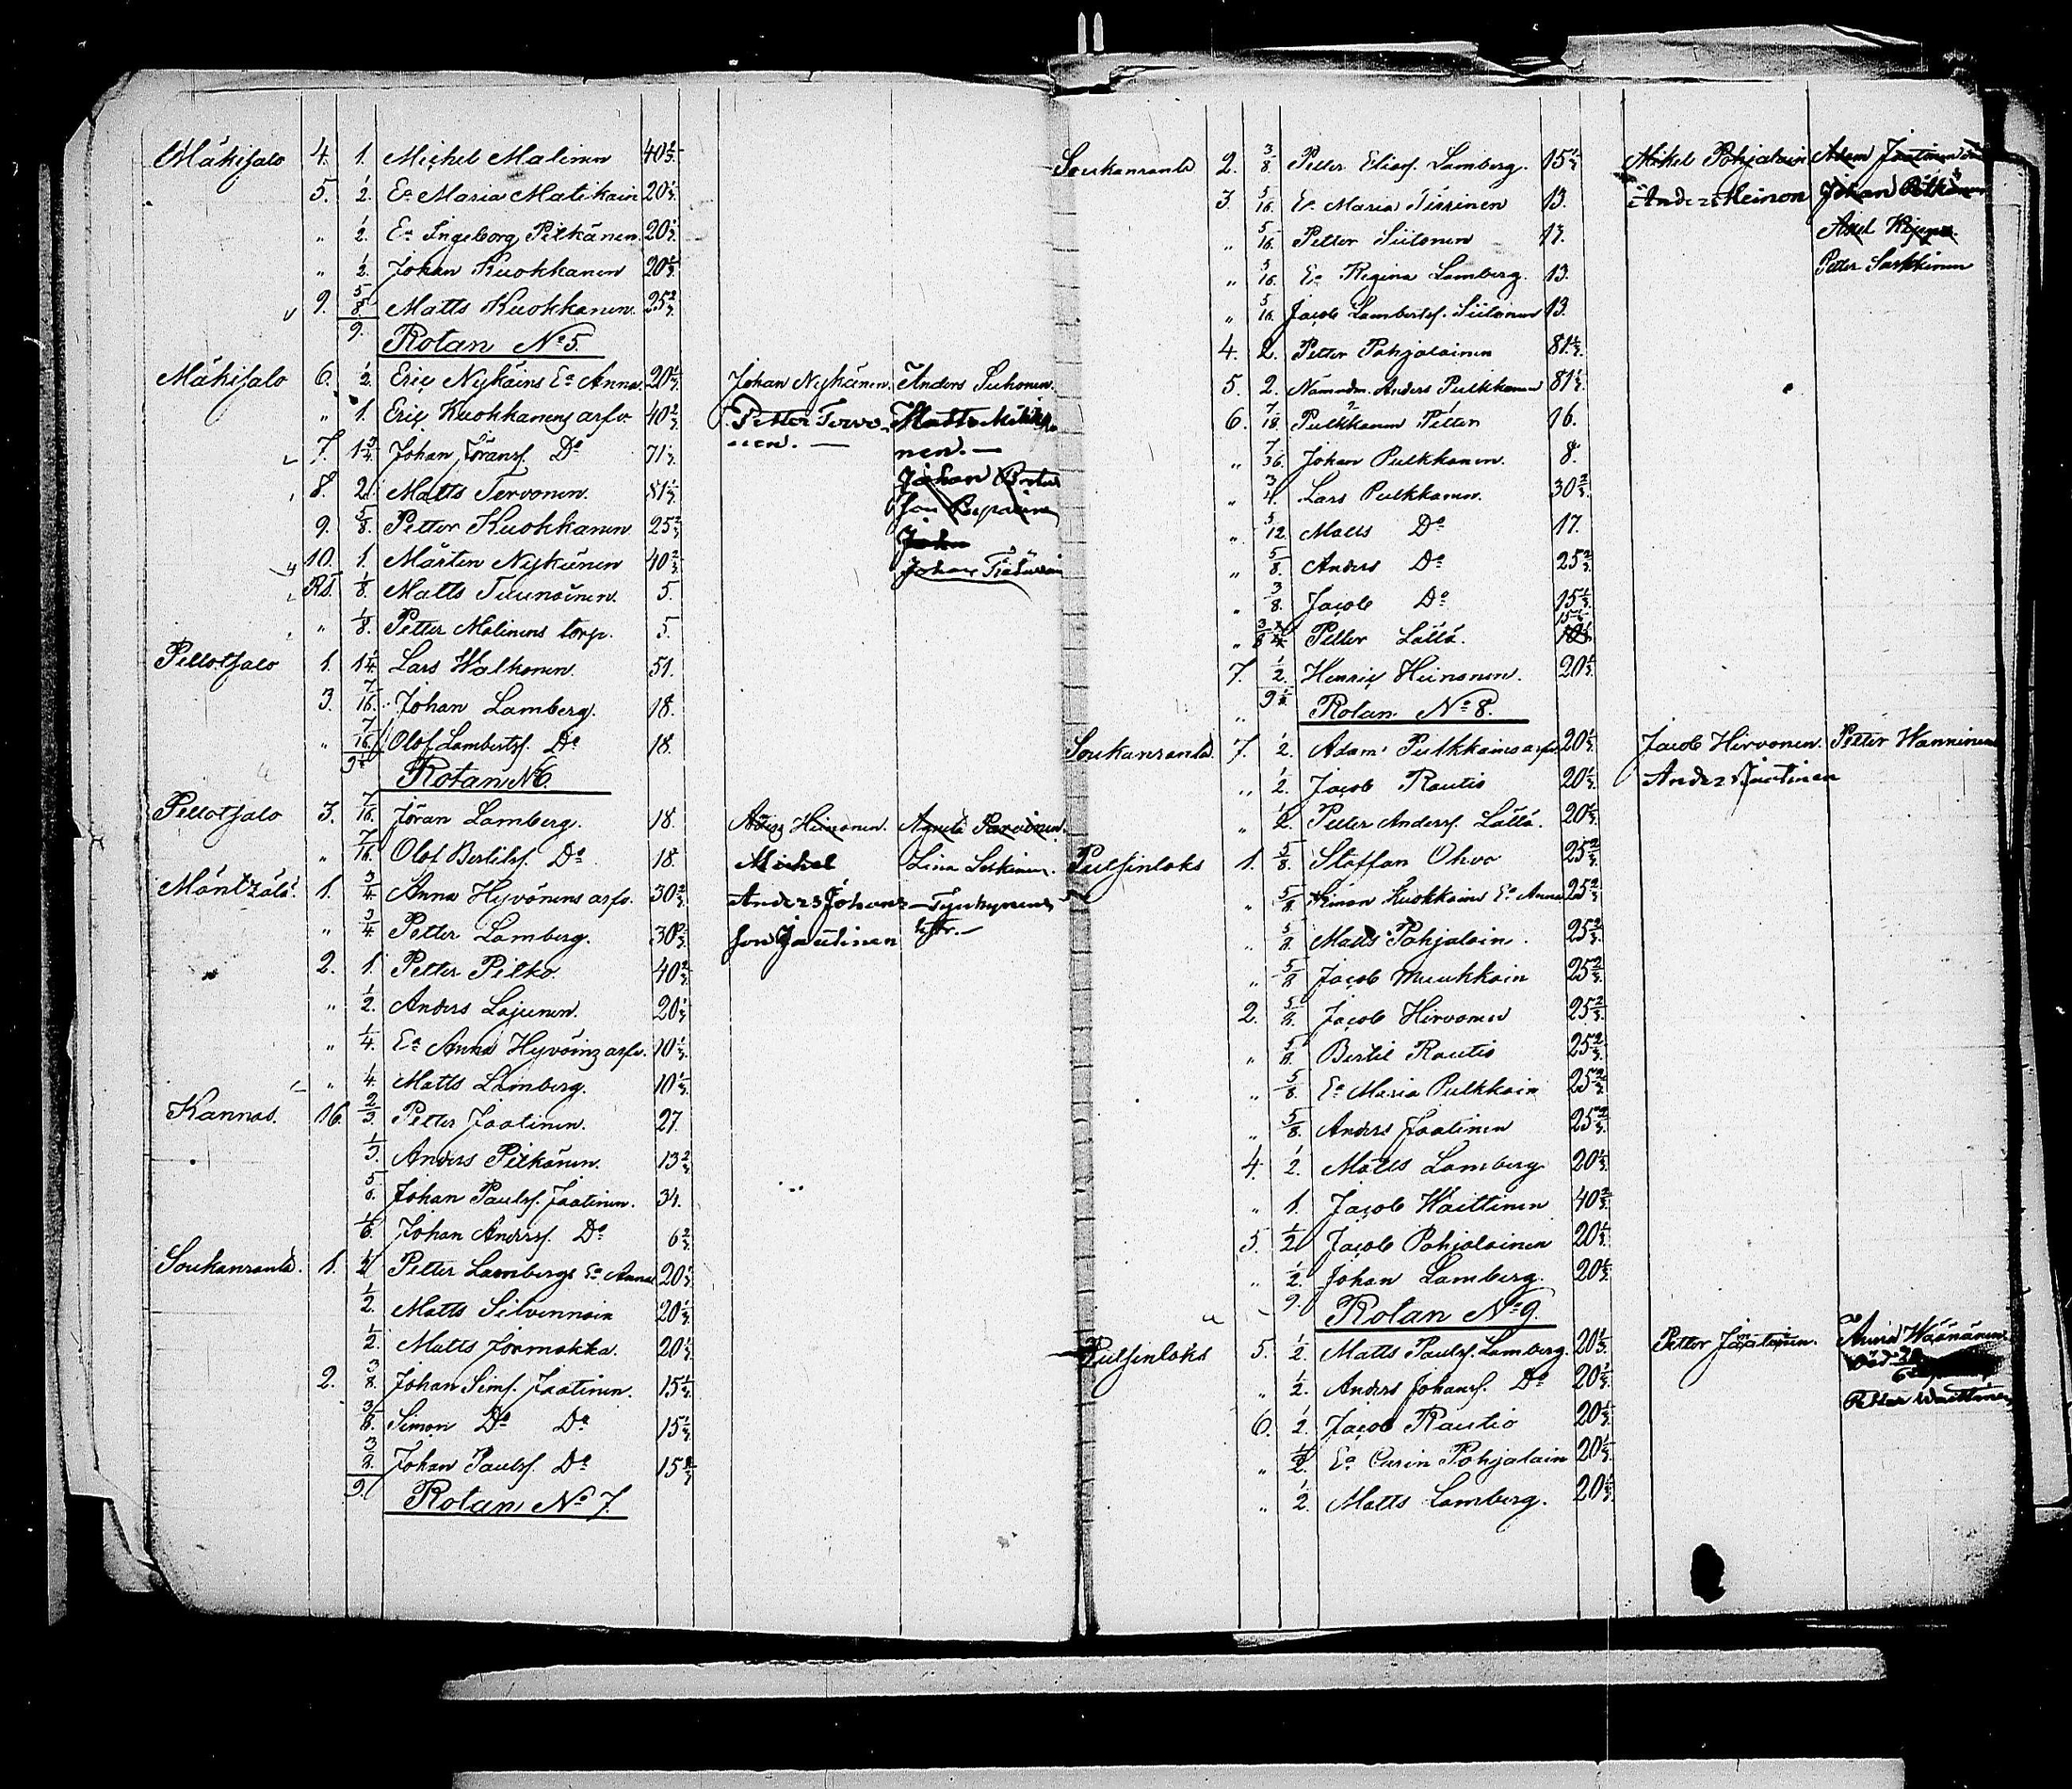 Mäkisalo 4. 1. Michel Malinen 40 2/3.
5. 1/2. Ea Maria Matikain 20 1/3.
" 1/2. Ea Ingeborg Pitkänen 20 1/3.
" 1/2. Johan Kuokkanen 20 1/3.
9. 5/8. Matts Kuokkanen. 25 2/3.
9. Rotan No 5.
Mäkisalo 6. 1/2. Eric Nykäins Ea Anna 20 1/3. Johan Nykänen. Anders Suhonen.
" 1. Eric Kuokkanens arfv. 40 2/3. Petter Tervo-
7. 1 3/4. Johan Jöransf. Do 71 1/3. nen. — nen. —
8. 2. Matts Tervonen. 81 1/3. Johan
9. 5/8. Petter Kuokkanen 25 2/3.
10. 1. Mårten Nykänen 40 2/3. Johan
Rd. 1/8. Matts Tuunainen. 5.
" 1/8. Petter Malinens torp. 5.
Pellotsalo 1. 1 1/4. Lars Walkonen. 51.
3. 7/16. Johan Lamberg. 18.
" 7/16. Olof Lambertsf. Do 18.
Rotan No 6.
Pellotsalo 3. 7/16. Jöran Lamberg. 18. Heinonen. Agneta Parvinen.
" 7/16. Olof Bertilsf. Do 18. Michel Lisa
Mäntzälä 1. 3/4. Anna Hyvönens arfv. 30 2/3. Anders Johans-
" 3/4. Petter Lamberg. 30 2/3. son Jautinen
2. 1. Petter Pitko. 40 2/3.
" 1/2. Anders Lajunen. 20 1/3.
" 1/4. Ea Anna Hyvöinz arfv. 10 1/3.
" 1/4. Matts Lamberg. 10 1/3.
Kannas. 16. 2/3. Petter Jaatinen. 27.
1/3. Anders Pitkänen. 13 2/3.
5/6. Johan Paulsf. Jaatinen. 34.
1/6. Johan Andersf. Do 6 2/3.
Soukanranta. 1. 1/2 Petter Lambergs Ea Anna 20 1/3.
1/2. Matts Silvennoin 20 1/3.
1/2. Matts Jormakka. 20 1/3.
2. 3/8. Johan Simf. Jaatinen. 15 1/3.
3/8. Simon Do Do 15 1/3.
Johan Paulsf. Do 15 1/3
9. Rotan No 7.
Soukanranta 2. 3/8. Petter Eliasf. Lamberg. 15 1/3. Mikel Pohjalain Adam Jaatinen
3. 5/16. Ea Maria Tirrinen 13. Anders Heinon Johan Pitkänen
" 5/16. Petter Siitonen 13.
" 5/16. Ea Regina Lamberg. 13. Petter Sarkkinen
" 5/16. Jacob Lambertsf. Siitonen 13.
4. 2. Petter Pohjalainen 81 1/3.
5. 2. Nämndm. Anders Pulkkanen 81 1/3.
6. 7/18. Pulkkanen Petter 16.
" 7/36. Johan Pulkkanen. 8.
" 3/4. Lars Pulkkanen. 30 2/3.
" 5/12. Matts Do 17.
" 5/8. Anders Do 25 2/3.
" 3/8. Jacob Do 15 1/3.
" 3/8 Petter Lällä. 15
7. 1/2. Henric Heinonen. 20 1/3.
Rotan No 8.
Soukanranta 7. 1/2. Adam Pulkkains arfv. 20 1/3. Jacob Hirvonen. Petter Wanninen
" 1/2. Jacob Rautio 20 1/3. Anders Jaatinen
" 1/2. Petter Andersf. Lällä. 20 1/3.
Putsinloks 1. 5/8. Staffan Ohvo 25 2/3.
" 5/8. Simon Kuokkains Ea Anna 25 2/3.
" 5/8. Matts Pohjalain. 25 2/3.
" 5/8 Jacob Muukkain 25 2/3.
2. 5/8. Jacob Hirvonen 25 2/3.
" 5/8. Bertil Rautio 25 2/3.
" 5/8. Ea Maria Pulkkain 25 2/3.
" 5/8. Anders Jaatinen 25 2/3.
4. 1/2. Matts Lamberg 20 1/3.
" 1. Jacob Waittinen 40 2/3.
5. 1/2 Jacob Pohjolainen 20 1/3.
" 1/2. Johan Lamberg. 20 1/3.
9. Rotan No 9.
Putsinloks 5. 1/2. Matts Paulsf. Lamberg. 20 1/3. Petter Jaatinen. Anna Wäänänen
" 1/2. Anders Johansf. Do 20 1/3.
6. 1/2. Jacob Rautio 20 1/3. Petter Waittinen
" 1/2. Ea Carin Pohjalain 20 1/3.
" 1/2. Matts Lamberg. 20 1/3.